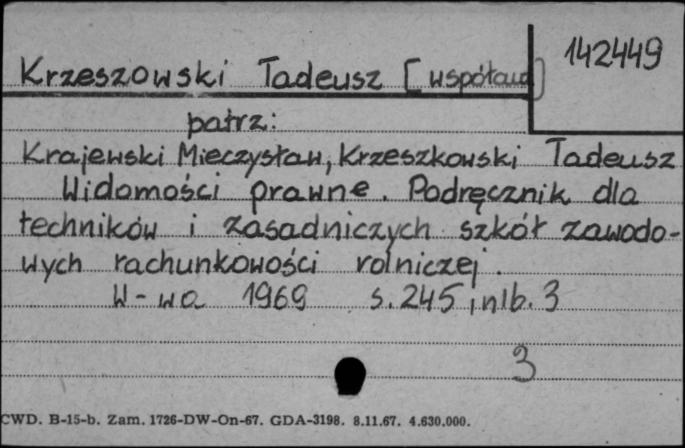 142449
Krzeszowski Tadeusz [współaut]
patrz:
Krajewski Mieczysław, Krzeszkowski Tadeusz
Widomości prawne. Podręcznik dla
techników i zasadniczych szkół zawodo-
wych rachunkowości rolniczej.
W-wa 1969 s. 245, nlb. 3
3
CWD. B-15-b. Zam. 1726-DW-On-67. GDA-3198. 8.11.67. 4.630.000.